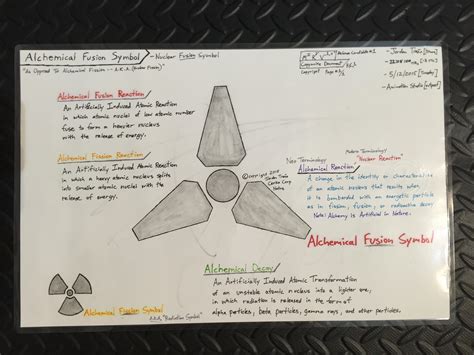 Alchemical Fusion Symbol - Nuclear Fusion Symbol
"As Opposed To Alchemical Fission - A.K.A. (Nuclear Fusion)"
Copyright Page #
- 5/12/2015 [Tuesday]
Alchemical Fusion Reaction
An Artificially Induced Atomic Reaction
in which atomic nuclei of low atomic number
fuse to form a heavier nucleus
with the release of energy.
Alchemical Fission Reaction
An Artificially Induced Atomic Reaction
in which a heavy atomic nucleus splits
into smaller atomic nuclei with the
release of energy.
©Copyright 2015
Neo Terminology
Alchemical Reaction
Modern Terminology
"Nuclear Reaction"
A change in the identity or characteristics
of an atomic nucleus that results when
it is bombarded with an energetic particle
as in fission, fusion, or radioactive decay
Note: Alchemy is Artificial in Nature.
Alchemical Fusion Symbol
Alchemical Decay
An Artificially Induced Atomic Transformation
of an unstable atomic nucleus into a lighter one,
in which radiation is released in the form of
alpha particles, beta particles, gamma rays, and other particles.
Alchemical Fission Symbol
A.K.A. "Radiation Symbol"